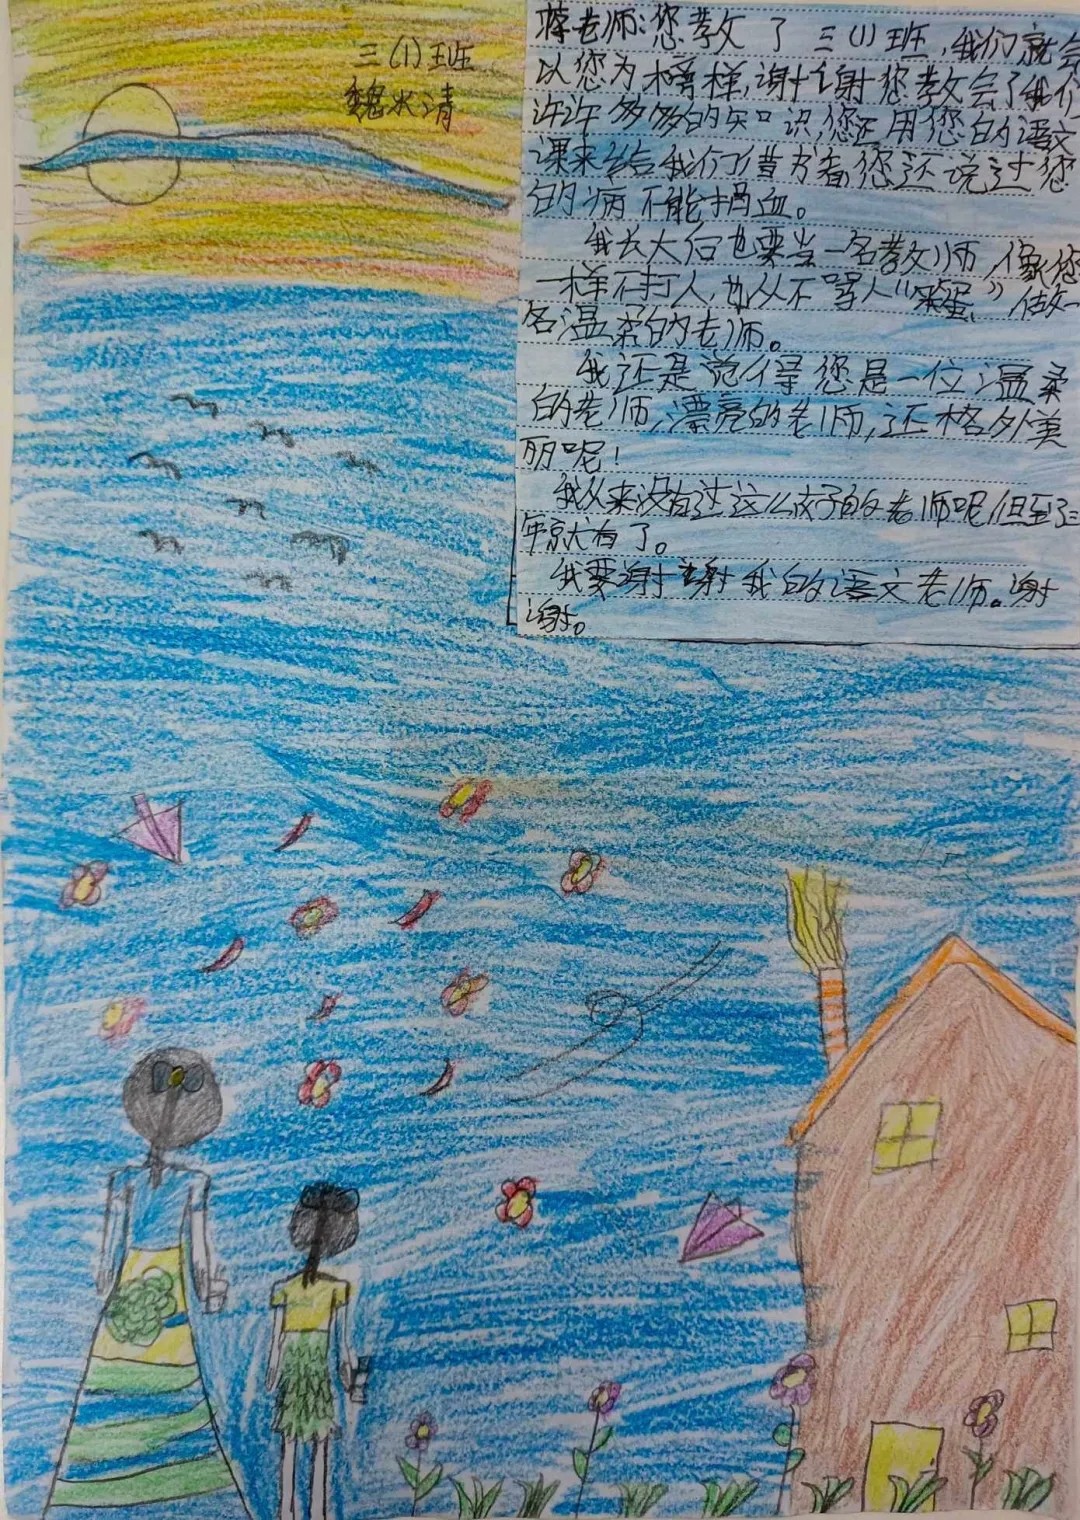 三(1)班
魏水清
老师:您教了三(1)班,我们就会
以您为榜样,谢谢您教会了我们
许许多多的知识,您还用您的语文
课来给我们借书看,您还说过您
的病不能捐血。
我长大后也要当一名教师,像您
一样不打人,也从不骂人“笨蛋”,做一
名温柔的老师。
我还是觉得您是一位温柔
的老师,漂亮的老师,还格外美
丽呢!
我从来没有过这么好的老师呢,但至了三
年就有了。
我要谢谢我的语文老师。谢
谢。